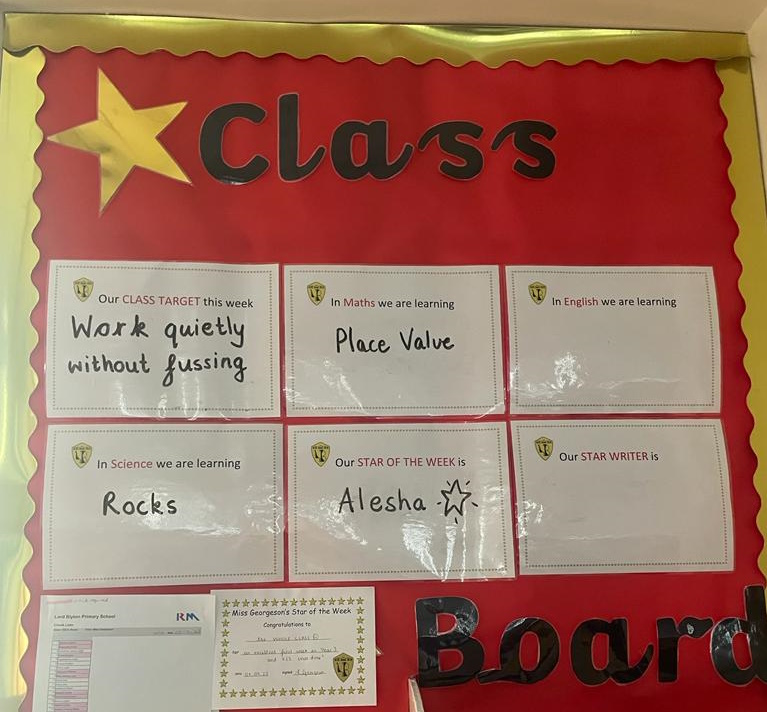 Class
Our CLASS TARGET this week
Work quietly
without fussing
In Maths we are learning
Place Value
In English we are learning
In Science we are learning
Rocks
Our STAR OF THE WEEK is
Alesha
Our STAR WRITER is
Lord Blyton Primary School
RM
Miss Georgeson's Star of the Week
Congratulations to
the whole CLASS
For an excellent first week in Year 3
Board